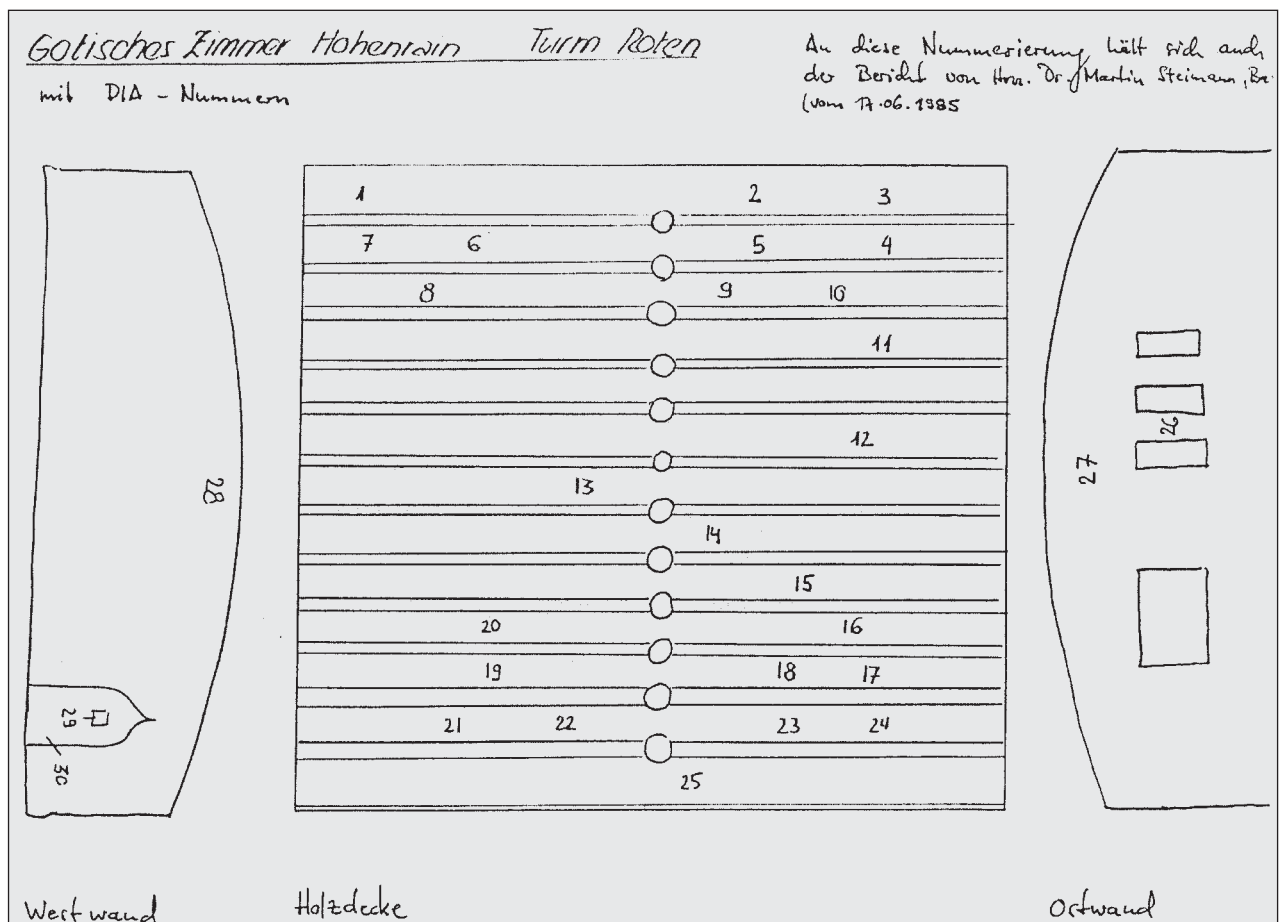 Gotisches Zimmer Hohenrain Turm Roten
mit DIA - Nummern
An diese Nummerierung hält sich auch
der Bericht von Hrn. Dr. Martin Steimann,
(vom 17.06.1985
1 2 3
7 6 5 4
8 9 10
11
12
13
14
15
20 16
19 18 17
21 22 23 24
25
28
29
30
26
27
Westwand
Holzdecke
Ostwand